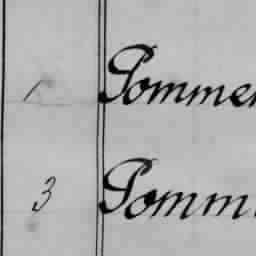 1 Pommer
3 Pomm